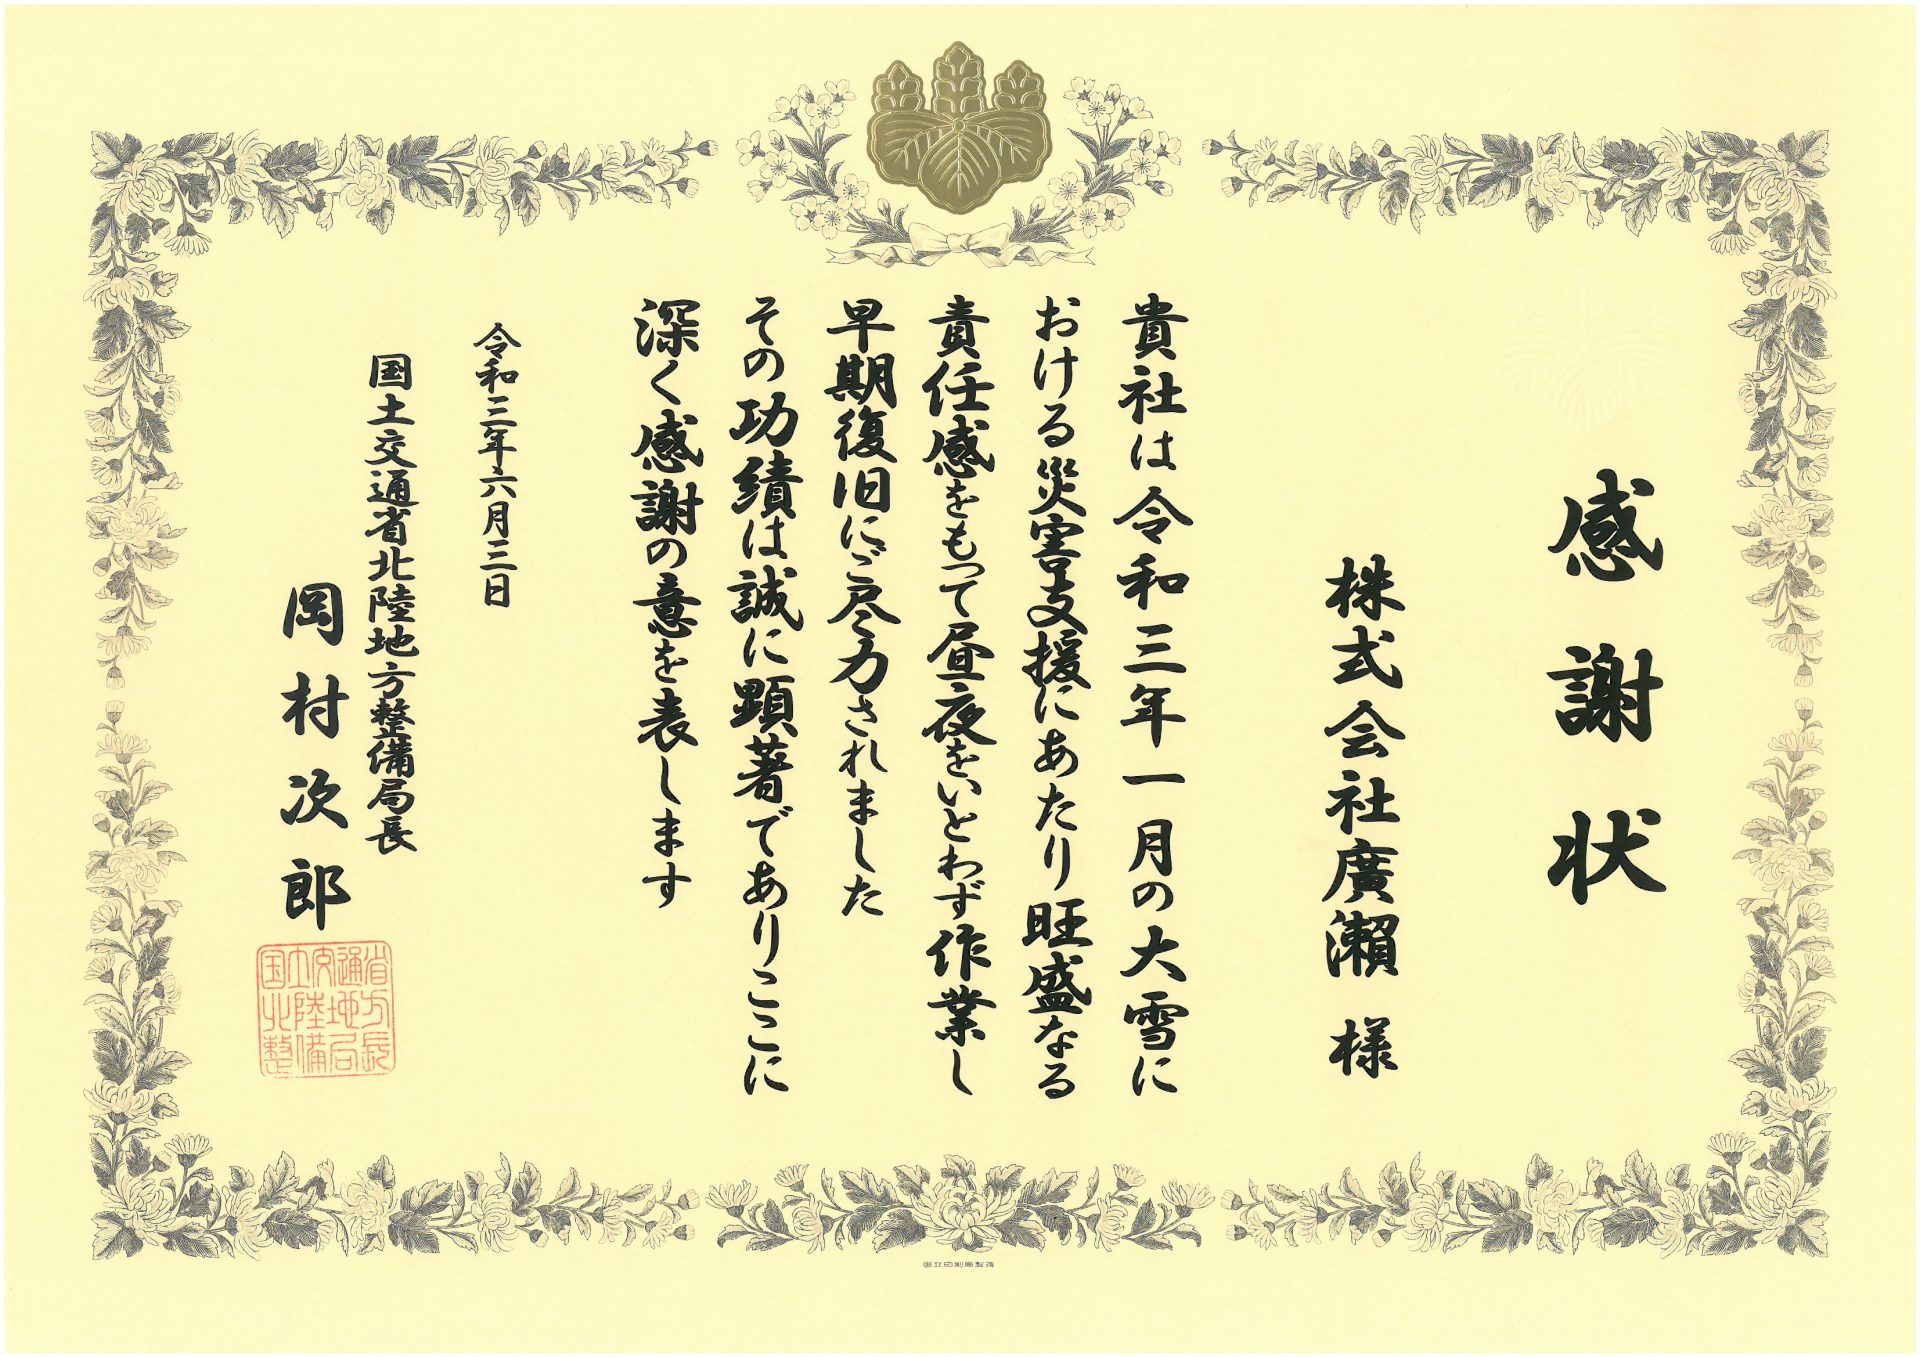 感謝状
株式会社廣瀨 様
貴社は令和三年一月の大雪に
おける災害支援にあたり旺盛なる
責任感をもって昼夜をいとわず作業し
早期復旧にご尽力されました
その功績は誠に顕著でありここに
深く感謝の意を表します
令和三年六月三日
国土交通省北陸地方整備局長
岡村次郎
国立印刷局製造